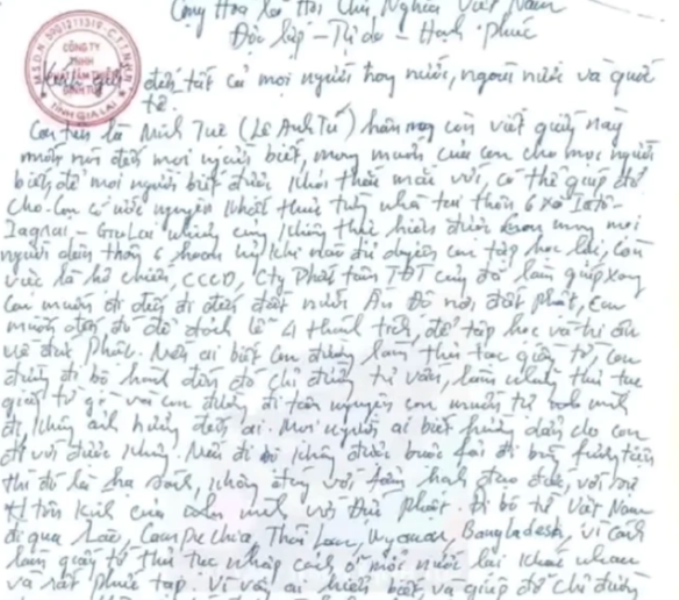 Cộng Hòa Xã Hội Chủ Nghĩa Việt Nam
Độc lập – Tự do – Hạnh Phúc
M.S.D.N: 5901211319 - C.T.T.N.H.H
CÔNG TY
TNHH
TỈNH GIA LAI
Kính gửi đến tất cả mọi người trong nước, ngoài nước và quốc
tế.
Con tên là Minh Tuệ (Lê Anh Tú) hôm nay con viết giấy này
muốn nói đến mọi người biết, mong muốn của con cho mọi người
biết, để mọi người biết được khỏi thắc mắc với, có thể giúp đỡ
cho. Con có ước nguyện khất thực từng nhà tại thôn 6 xã
- Gia Lai nhưng cũng không thực hiện được mong mọi
người dân thôn 6 hoan hỷ khi nào đủ duyên con tập học lại, còn
việc là hộ chiếu, CCCD, Cty Phát tâm TĐT cũng đã làm giúp xong
con muốn đi đến đi đến đất nước Ấn Độ nơi đất Phật, con
muốn đến đó để đảnh lễ 4 thánh tích, để tập học và tri ân
về đức Phật. Nếu ai biết con đường làm thủ tục giấy tờ, con
đường đi bộ hành đến đó chỉ đường tư vấn, làm những thủ tục
giấy tờ gì với con đường đi tâm nguyện con muốn tự mình
đi không ảnh hưởng đến ai. Mọi người ai biết hướng dẫn cho con
đi với được không. Nếu đi bộ không được buộc phải đi bằng phương tiện
thì đó là hạ sách, không đúng với tâm hạnh đạo đức, với sự
tôn kính của mình với Đức Phật. Đi bộ từ Việt Nam
đi qua Lào, Campuchia, Thái Lan, Myanmar, Bangladesh, vì cách
làm giấy tờ thủ tục nhập cảnh ở mỗi nước lại khác nhau
và rất phức tạp. Vì vậy ai hiểu biết, và giúp đỡ chỉ đường